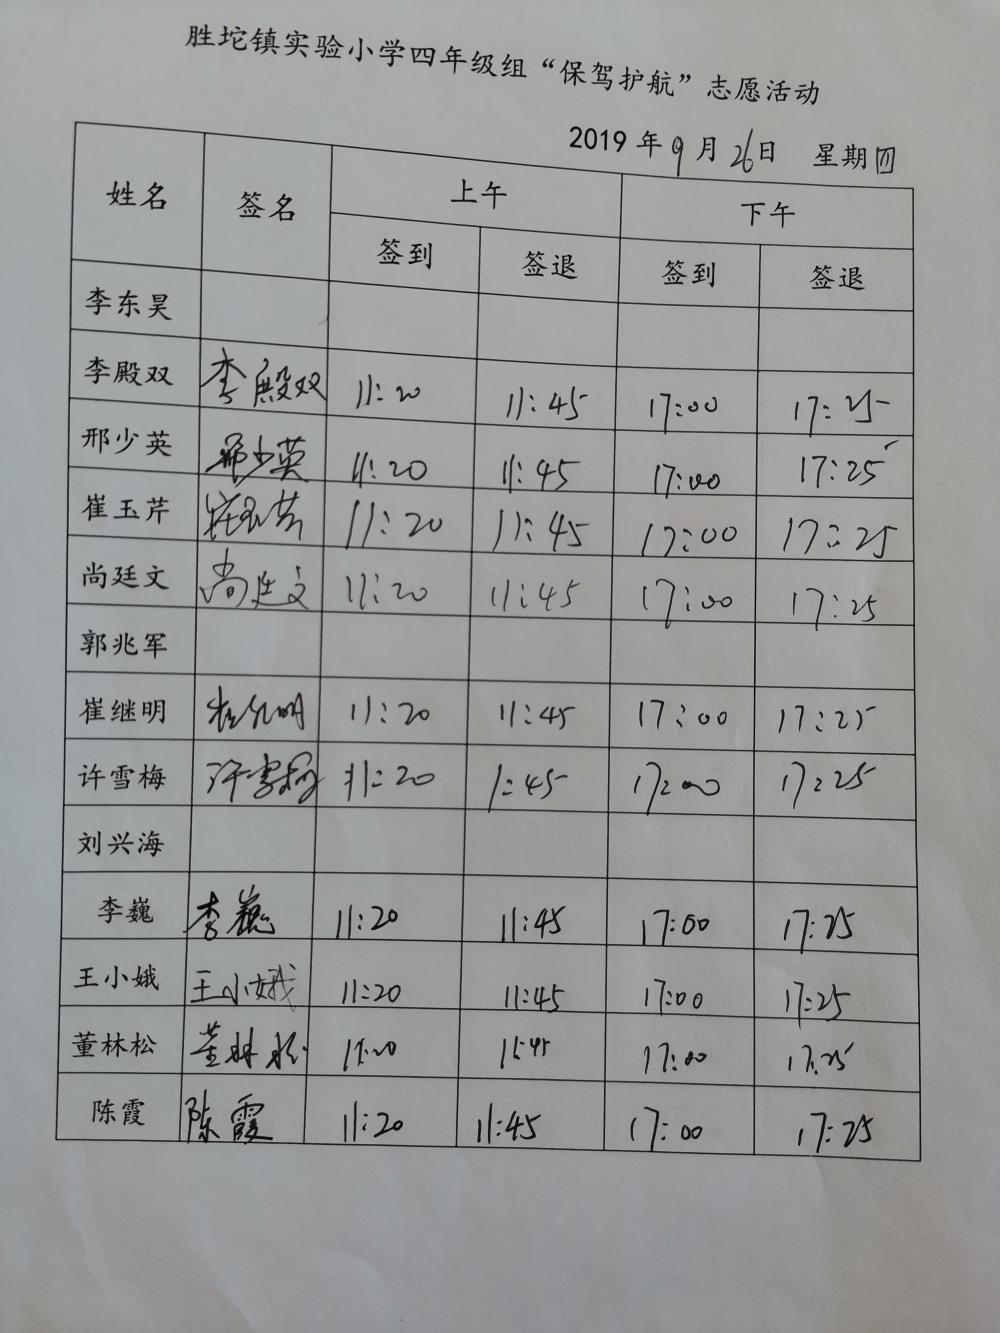 胜坨镇实验小学四年级组“保驾护航”志愿活动
2019年9月26日 星期四
姓名 签名 上午 下午
签到 签退 签到 签退
李东昊
李殿双 李殿双 11:20 11:45 17:00 17:25
邢少英 邢少英 11:20 11:45 17:00 17:25
崔玉芹 崔玉芹 11:20 11:45 17:00 17:25
尚廷文 尚廷文 11:20 11:45 17:00 17:25
郭兆军
崔继明 崔继明 11:20 11:45 17:00 17:25
许雪梅 许雪梅 11:20 1:45 17:00 17:25
刘兴海
李巍 李巍 11:20 11:45 17:00 17:25
王小娥 王小娥 11:20 11:45 17:00 17:25
董林松 董林松 11:20 11:45 17:00 17:25
陈霞 陈霞 11:20 11:45 17:00 17:25